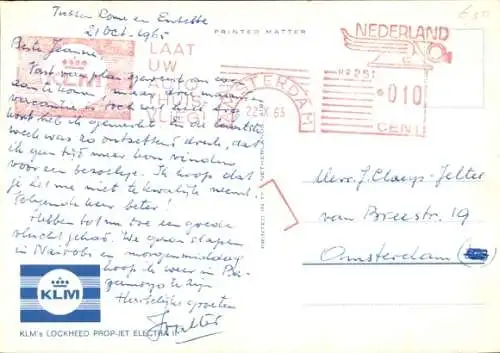 Tussen Rome en Entebbe
21 Oct. 1965
Beste Jeanne,
Vast van plan geweest aan
te komen, maar door
vacantie is toch
heb ik gemerkt in de laatste
week was zo ontzettend druk, dat
ik geen tijd meer kon vinden
voor een bezoekje. Ik hoop dat
je het me niet kwalijk neemt.
Volgende keer beter!
Hebben tot nu toe een goede
vlucht gehad. We gaan slapen
in Nairobi en morgenmiddag
hoop ik weer in
te zijn
Hartelijke groeten
PRINTED MATTER
KLM
LAAT
UW
AUTO
THUIS
VLIEG!
AMSTERDAM
22.X.65
NEDERLAND
HR 251
010
CENT
PRINTED IN THE NETHERLANDS
Mevr. J. Claeys-Jelter
van Breestr. 19
Amsterdam
KLM
KLM's LOCKHEED PROP-JET ELECTRA II
6,50